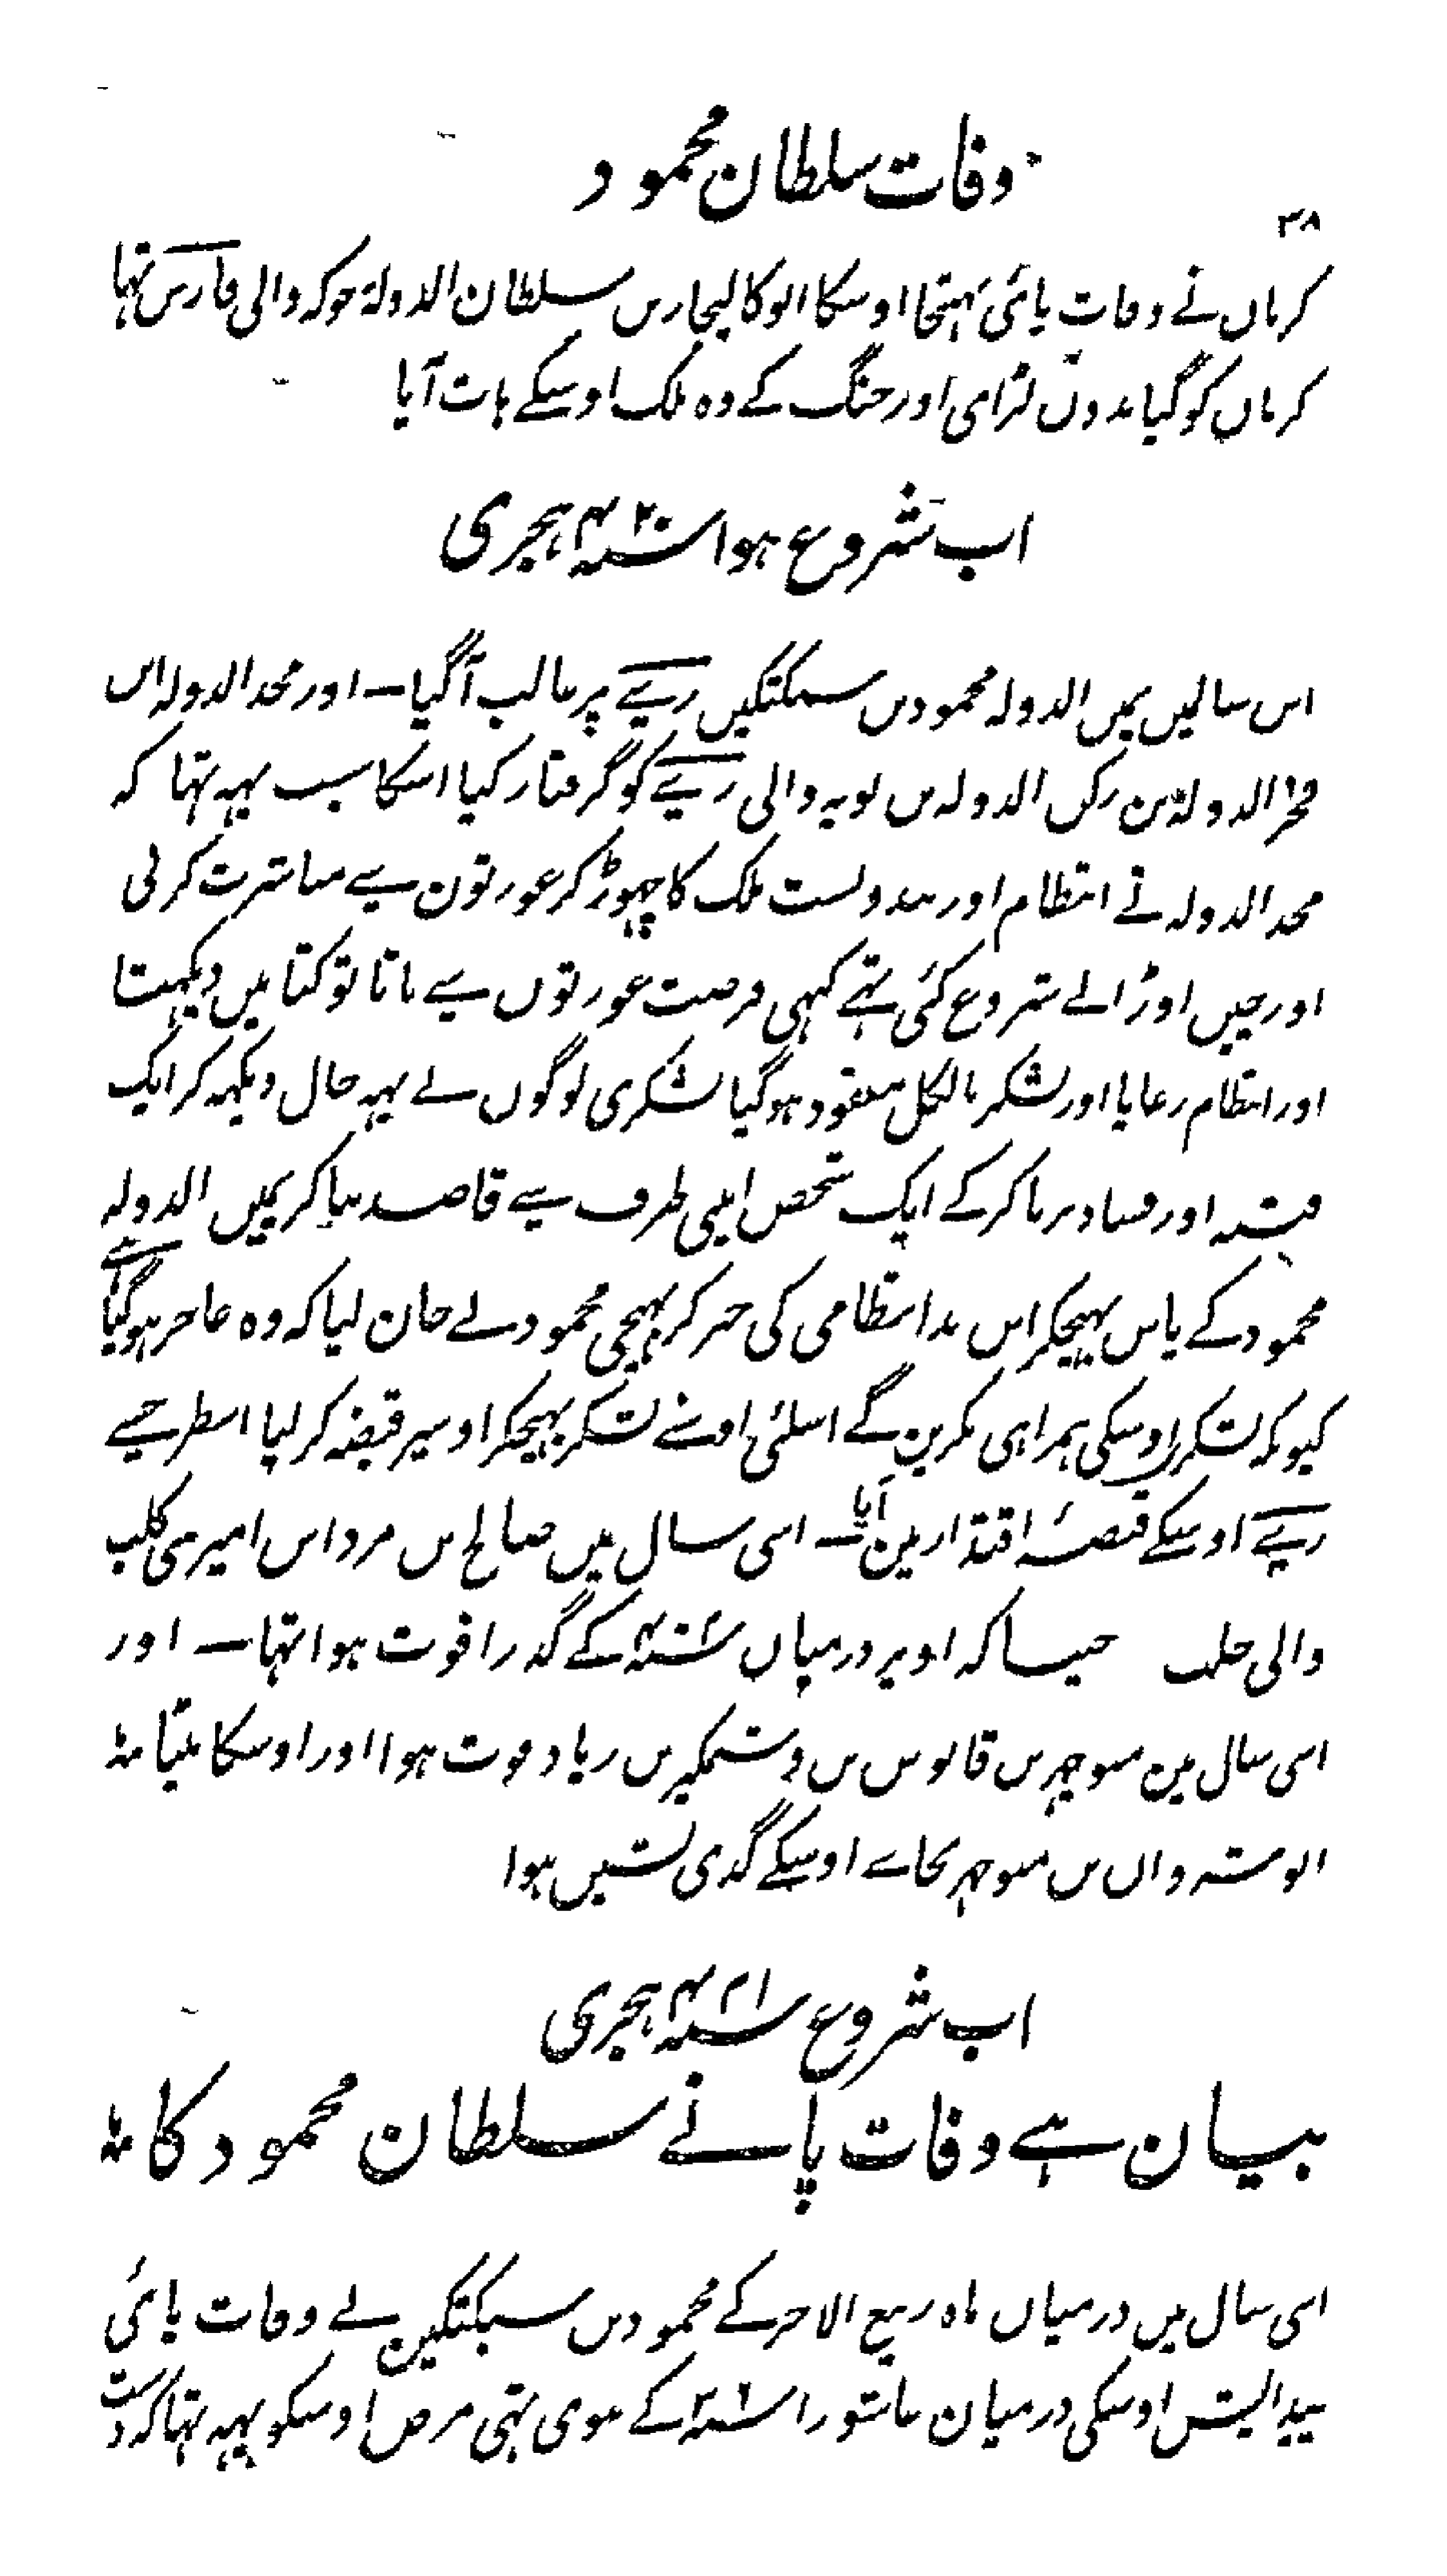 وفات سلطان محمود
۳۸
کرمان نے وفات پائی بھتیجا اوسکا ابو کالیجار بن سلطان الدولۃ جوکہ والی فارس تہا
کرمان کو گیا بدون لڑائی اور جنگ کے وہ ملک اوسکے ہات آیا
اب شروع ہوا سنہ ۴۲۰ ہجری
اس سالمیں یمین الدولہ محمود بن سبکتگین رے پر غالب آگیا ۔ اور مجد الدولہ ابن
فخر الدولۃ بن رکن الدولہ بن بویہ والی رے کو گرفتار کیا اسکا سبب یہہ تہا کہ
مجد الدولہ نے انتظام اور بندوبست ملک کا چہوڑ کر عورتون سے مباشرت کرنی
اور چین اوڑانے شروع کئی تہے کبہی فرصت عورتوں سے پاتا تو کتابیں دیکہتا
اور انتظام رعایا اور لشکر بالکل مفقود ہو گیا لشکری لوگوں نے یہہ حال دیکہہ کر ایک
فتنہ اور فساد برپا کر کے ایک شخص اپنی طرف سے قاصد بنا کر یمین الدولہ
محمود کے پاس بہیجکر اس بد انتظامی کی خبر کر بہیجی محمود نے جان لیا کہ وہ عاجز ہو گیا ہے
کیونکہ لشکر اوسکی ہمراہی نکرین گے اسلئی اوسنے لشکر بہیجکر اوسپر قبضہ کر لیا اسطرحسے
رے اوسکے قبضۂ اقتدار مین آیا ۔ اسی سال میں صالح بن مرداس امیر بنی کلب
والی حلب جیسا کہ اوپر درمیان سنہ ۴۰۲ کے گذرا فوت ہوا تہا ۔ اور
اسی سال مین منوچہر بن قابوس بن وشمگیر بن زیاد فوت ہوا اور اوسکا بیٹا
انوشہ وان بن منوچہر بجاے اوسکے گدی نشین ہوا
اب شروع سنہ ۴۲۱ ہجری
بیان ہے وفات پانے سلطان محمود کا
اسی سال میں درمیان ماہ ربیع الاخر کے محمود بن سبکتگین نے وفات پائی
پیدایش اوسکی درمیان عاشورا سنہ کے ہوی تہی مرض اوسکو یہہ تہا کہ دست